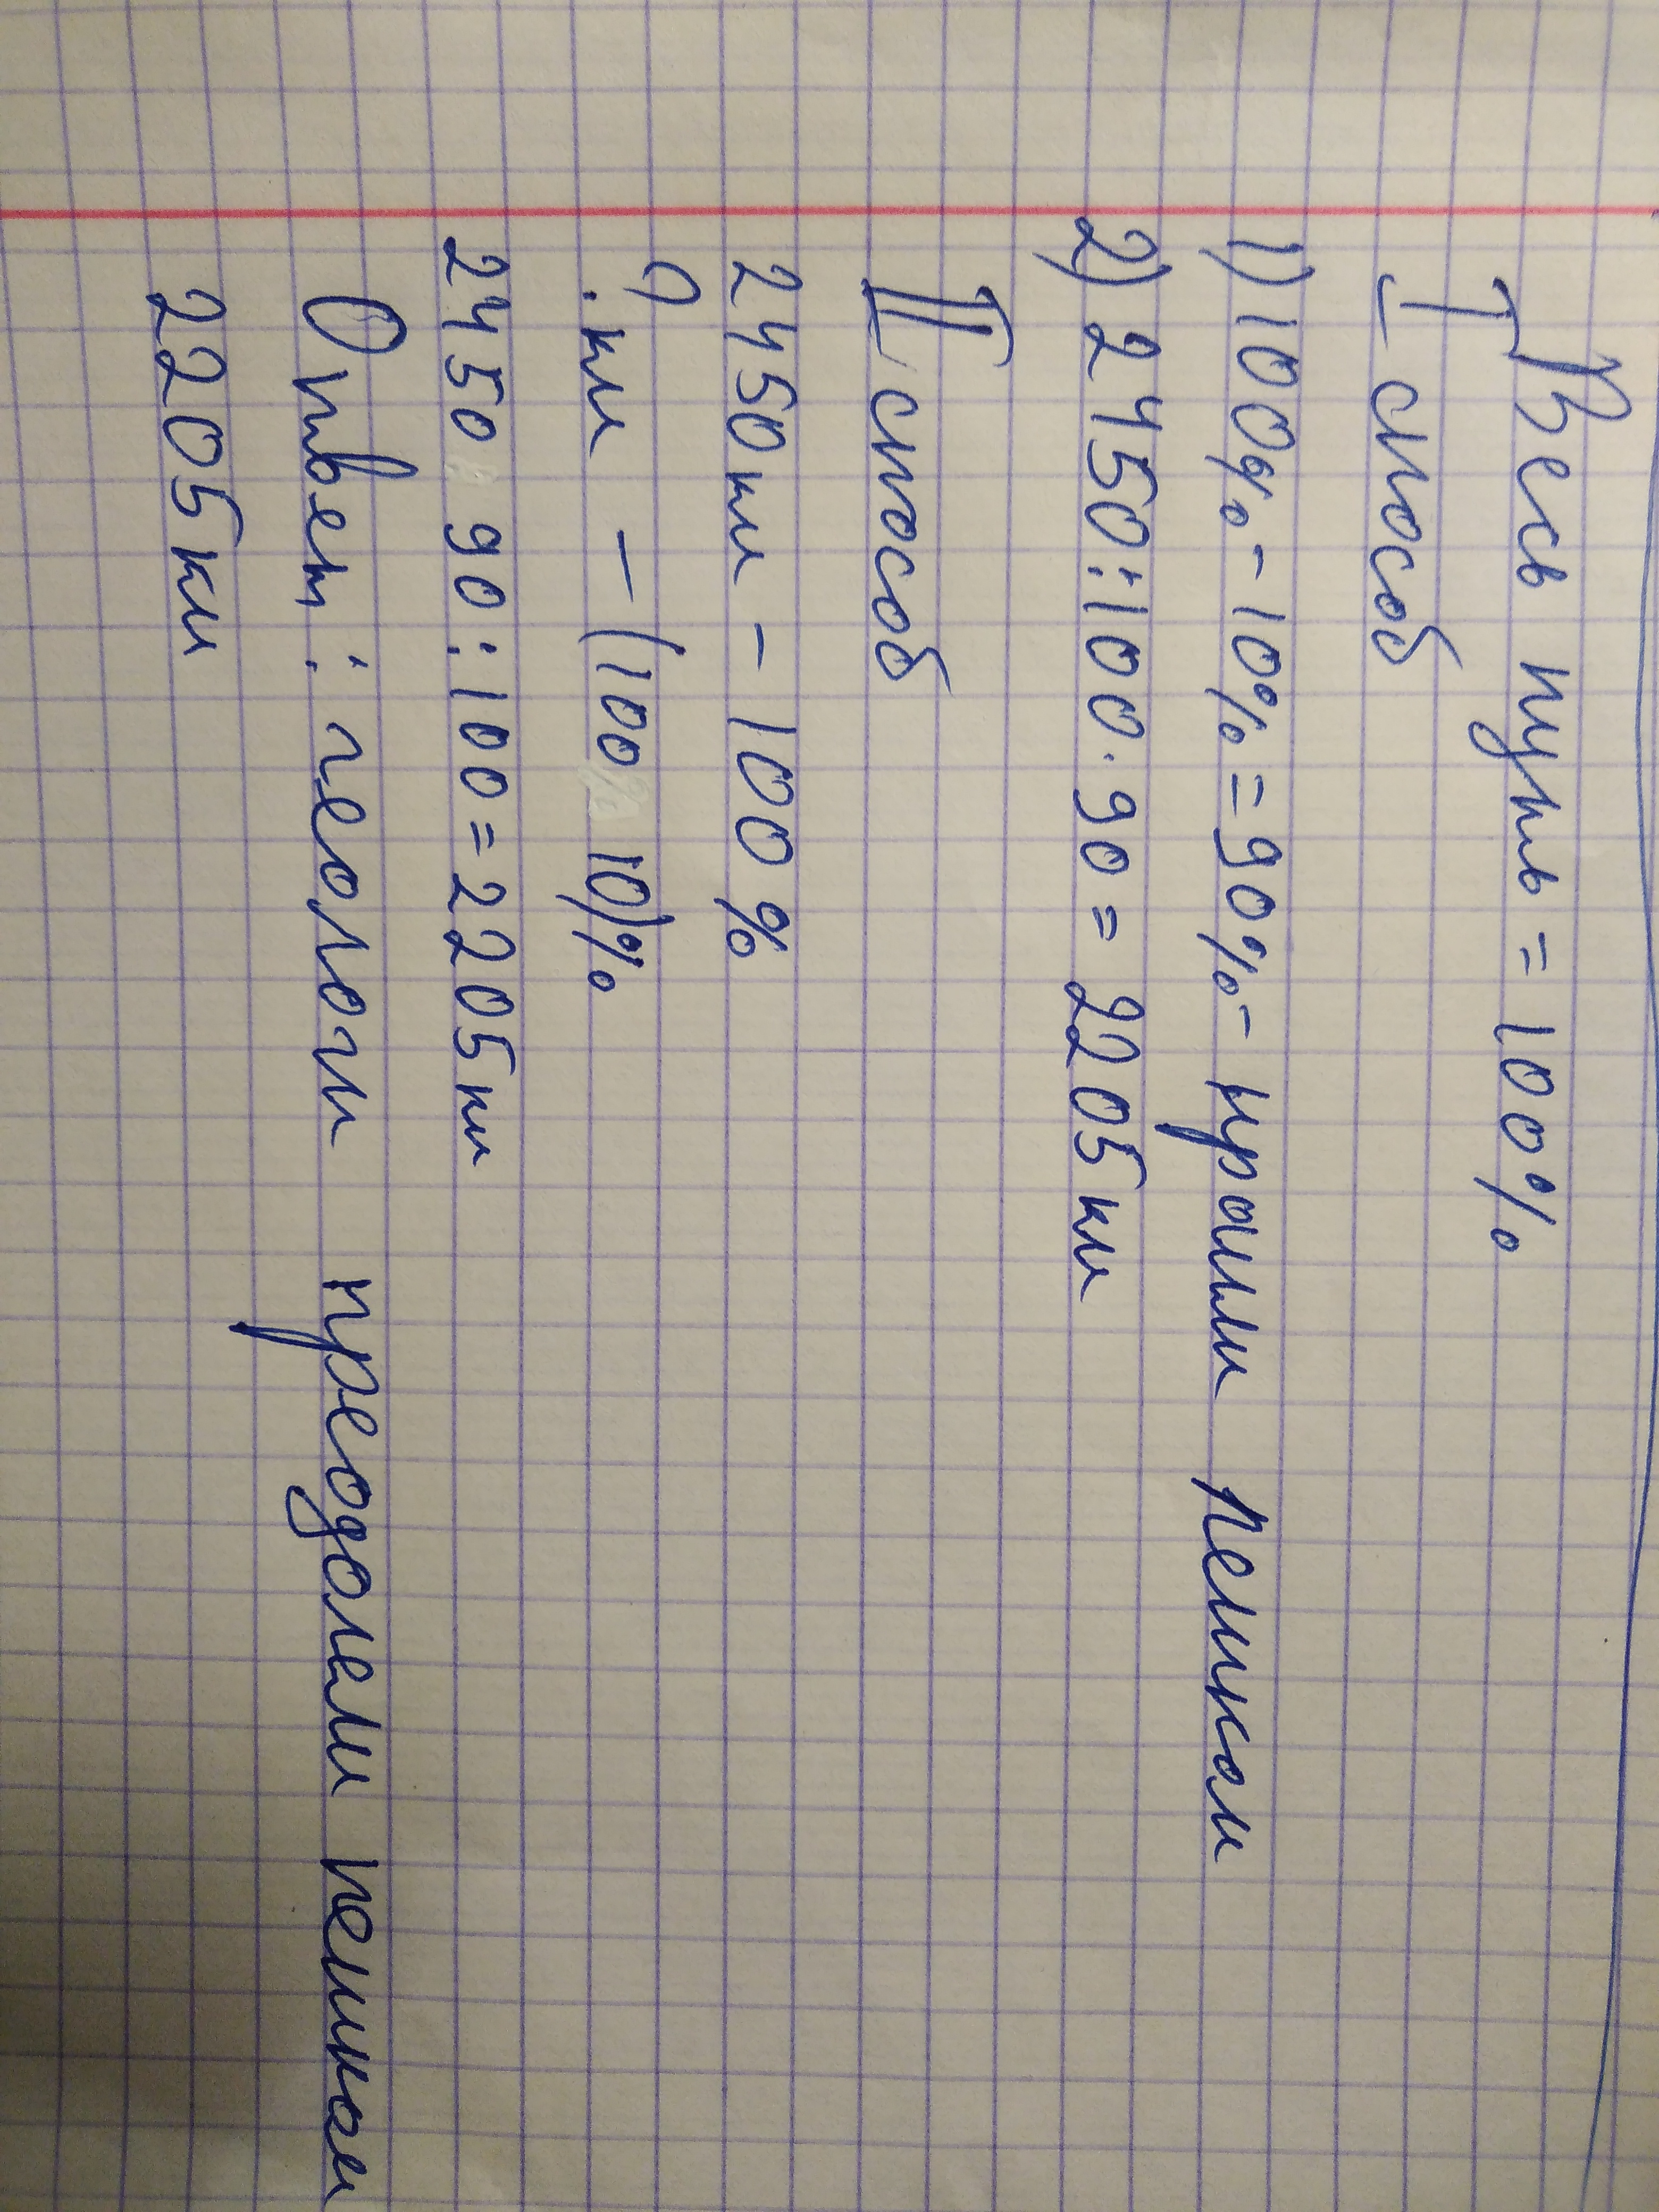 Весь путь = 100%
I способ
1) 100% - 10% = 90% - прошли пешком
2) 2450 : 100 · 90 = 2205 км
II способ
2450 км - 100 %
? км - (100 10)%
2450 90 : 100 = 2205 км
Ответ : геологи преодолели пешком
2205 км